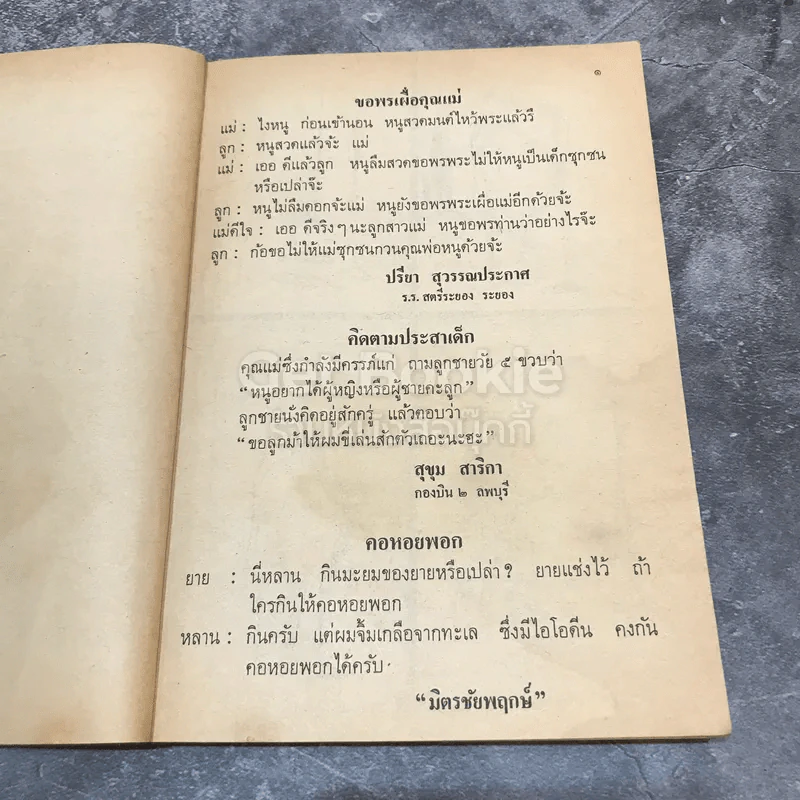 ๑
ขอพรเผื่อคุณแม่
แม่ : ไงหนู ก่อนเข้านอน หนูสวดมนต์ไหว้พระแล้วรึ
ลูก : หนูสวดแล้วจ้ะ แม่
แม่ : เออ ดีแล้วลูก หนูลืมสวดขอพรพระไม่ให้หนูเป็นเด็กซุกซน
หรือเปล่าจ๊ะ
ลูก : หนูไม่ลืมดอกจ้ะแม่ หนูยังขอพรพระเผื่อแม่อีกด้วยจ้ะ
แม่ดีใจ : เออ ดีจริง ๆ นะลูกสาวแม่ หนูขอพรท่านว่าอย่างไรจ๊ะ
ลูก : ก้อขอไม่ให้แม่ซุกซนกวนคุณพ่อหนูด้วยจ้ะ
ปรียา สุวรรณประกาศ
ร.ร. สตรีระยอง ระยอง
คิดตามประสาเด็ก
คุณแม่ซึ่งกำลังมีครรภ์แก่ ถามลูกชายวัย ๕ ขวบว่า
“หนูอยากได้ผู้หญิงหรือผู้ชายคะลูก”
ลูกชายนั่งคิดอยู่สักครู่ แล้วตอบว่า
“ขอลูกม้าให้ผมขี่เล่นสักตัวเถอะนะฮะ”
สุขุม สาริกา
กองบิน ๒ ลพบุรี
คอหอยพอก
ยาย : นี่หลาน กินมะยมของยายหรือเปล่า ? ยายแช่งไว้ ถ้า
ใครกินให้คอหอยพอก
หลาน : กินครับ แต่ผมจิ้มเกลือจากทะเล ซึ่งมีไอโอดีน คงกัน
คอหอยพอกได้ครับ
“มิตรชัยพฤกษ์”